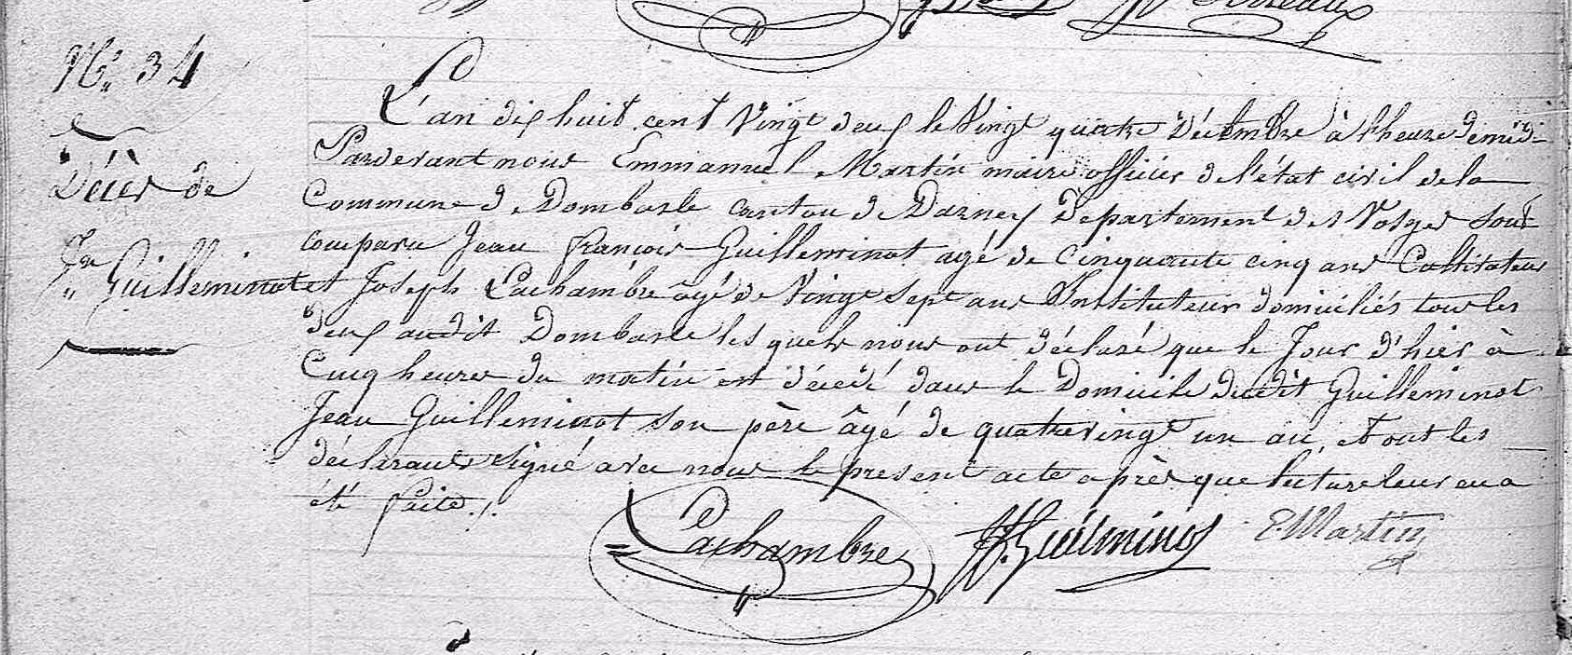 N° 34
Décès de
Jn Guilleminot
L'an dix huit cent vingt deux le vingt quatre Décembre à l'heure de midi
Pardevant nous Emmanuel Martin maire officier de l'état civil de la
Commune de Dombasle canton de Darney Département des Vosges sont
comparu Jean françois Guilleminot agé de cinquante cinq ans Cultivateur
et Joseph Lachambre âgé de vingt sept ans Instituteur domiciliés tous les
deux audit Dombasle les quels nous ont déclaré que le Jour d'hier à
Cinq heures du matin est décédé dans le Domicile dudit Guilleminot
Jean Guilleminot son père âgé de quatrevingt un an, et ont les
déclarants signé avec nous le présent acte après que lecture leur en a
été faite ./.
Lachambre JF. Guilminot E Martin